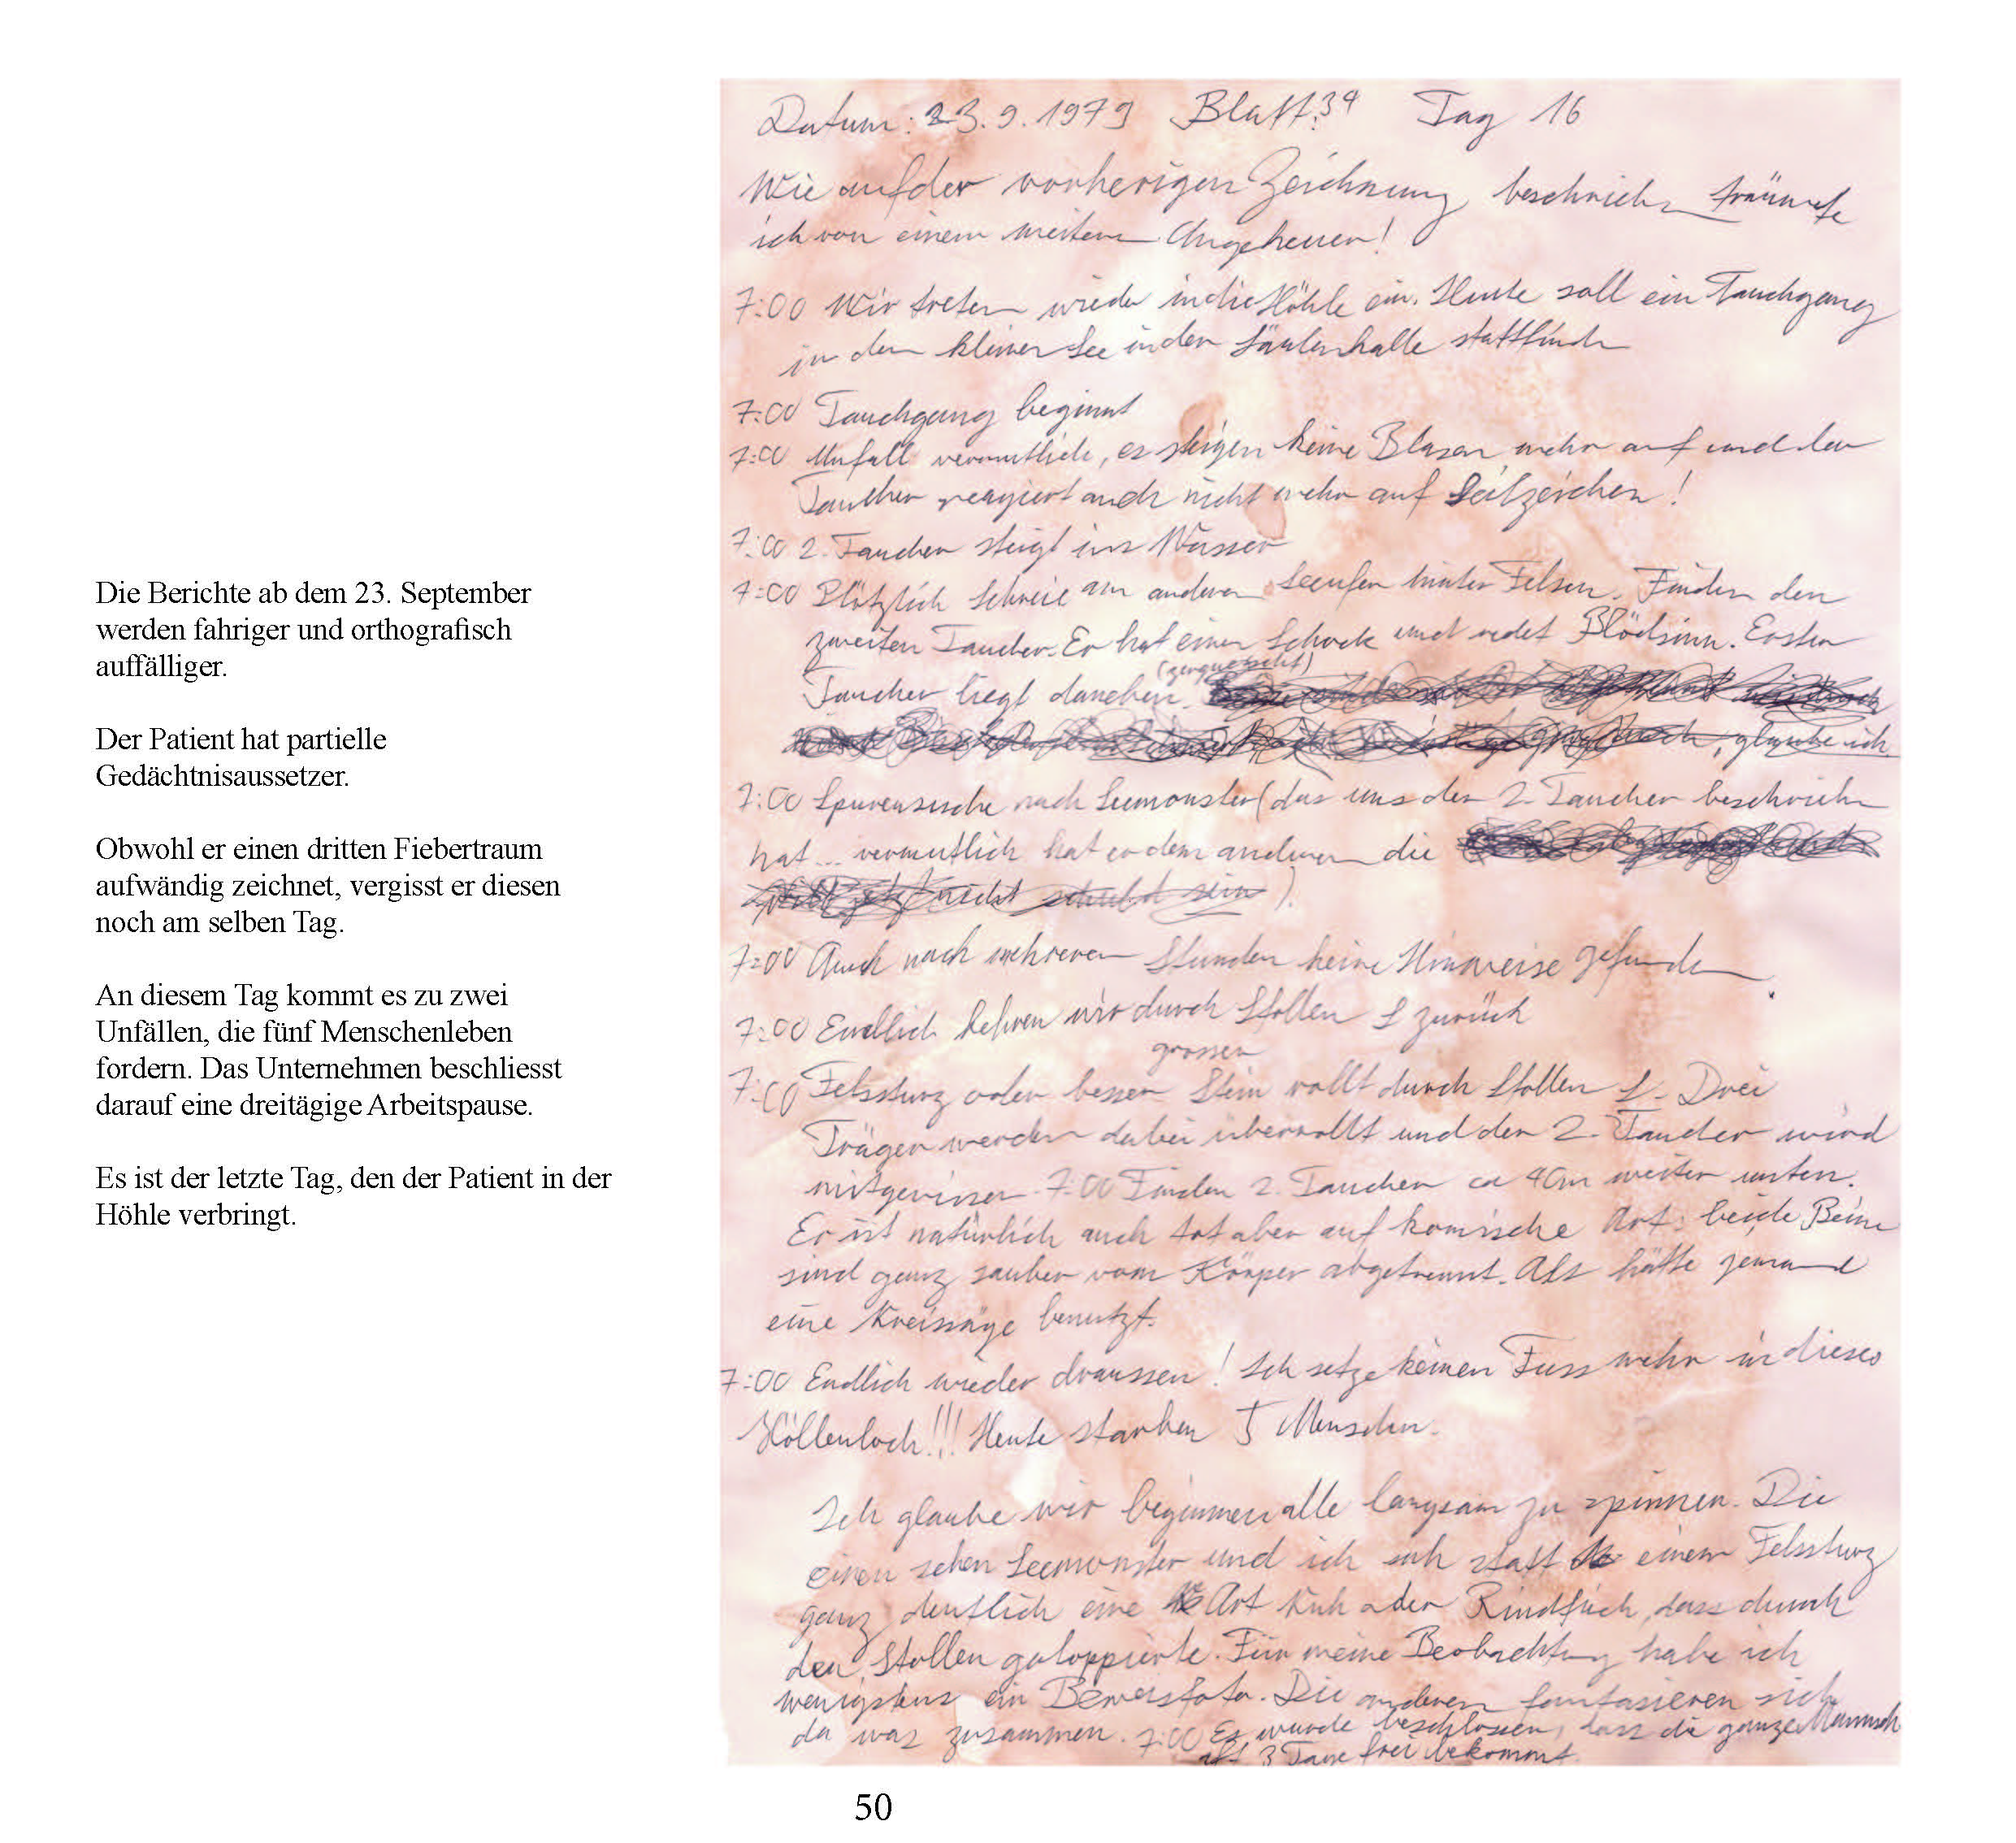 Die Berichte ab dem 23. September
werden fahriger und orthografisch
auffälliger.
Der Patient hat partielle
Gedächtnisaussetzer.
Obwohl er einen dritten Fiebertraum
aufwändig zeichnet, vergisst er diesen
noch am selben Tag.
An diesem Tag kommt es zu zwei
Unfällen, die fünf Menschenleben
fordern. Das Unternehmen beschliesst
darauf eine dreitägige Arbeitspause.
Es ist der letzte Tag, den der Patient in der
Höhle verbringt.
Datum: 23.9.1979 Blatt: 34 Tag 16
Wie auf der vorherigen Zeichnung beschrieben träumte
ich von einem weiteren Ungeheuer!
7:00 Wir treten wieder in die Höhle ein. Heute soll ein Tauchgang
in dem kleinen See in der Säulenhalle stattfinden
7:00 Tauchgang beginnt
7:00 Unfall vermutlich, es steigen keine Blasen mehr auf und der
Taucher reagiert auch nicht mehr auf Seilzeichen!
7:00 2. Taucher steigt ins Wasser
7:00 Plötzlich Schreie am anderen Seeufer hinter Felsen. Finden den
zweiten Taucher. Er hat einen Schock und redet Blödsinn. Erster
(zerquetscht)
Taucher liegt daneben.
glaube ich
7:00 Spurensuche nach Seemonster (das uns der 2. Taucher beschrieben
hat... vermutlich hat er dem anderen die
nicht schuld sein).
7:00 Auch nach mehreren Stunden keine Hinweise gefunden.
7:00 Endlich kehren wir durch Stollen S zurück
grosser
7:00 Felssturz oder besser Stein rollt durch Stollen S. Drei
Träger werden dabei überrollt und der 2. Taucher wird
mitgerissen. 7:00 Finden 2. Taucher ca 40m weiter unten.
Er ist natürlich auch tot aber auf komische Art: beide Beine
sind ganz sauber vom Körper abgetrennt. Als hätte jemand
eine Kreissäge benutzt.
7:00 Endlich wieder draussen! Ich setze keinen Fuss mehr in dieses
Höllenloch!!! Heute starben 5 Menschen.
Ich glaube wir beginnen alle langsam zu spinnen. Die
einen sehen Seemonster und ich sah statt einem Felssturz
ganz deutlich eine Art Kuh oder Rindfich, dass durch
den Stollen galoppierte. Für meine Beobachtung habe ich
wenigstens ein Beweisfoto. Die anderen fantasieren sich
da was zusammen. 7:00 Es wurde beschlossen, dass die ganze Mannsch
aft 3 Tage frei bekommt.
50